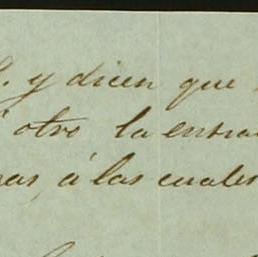 y dicen que
otro la entra
as á las cuales